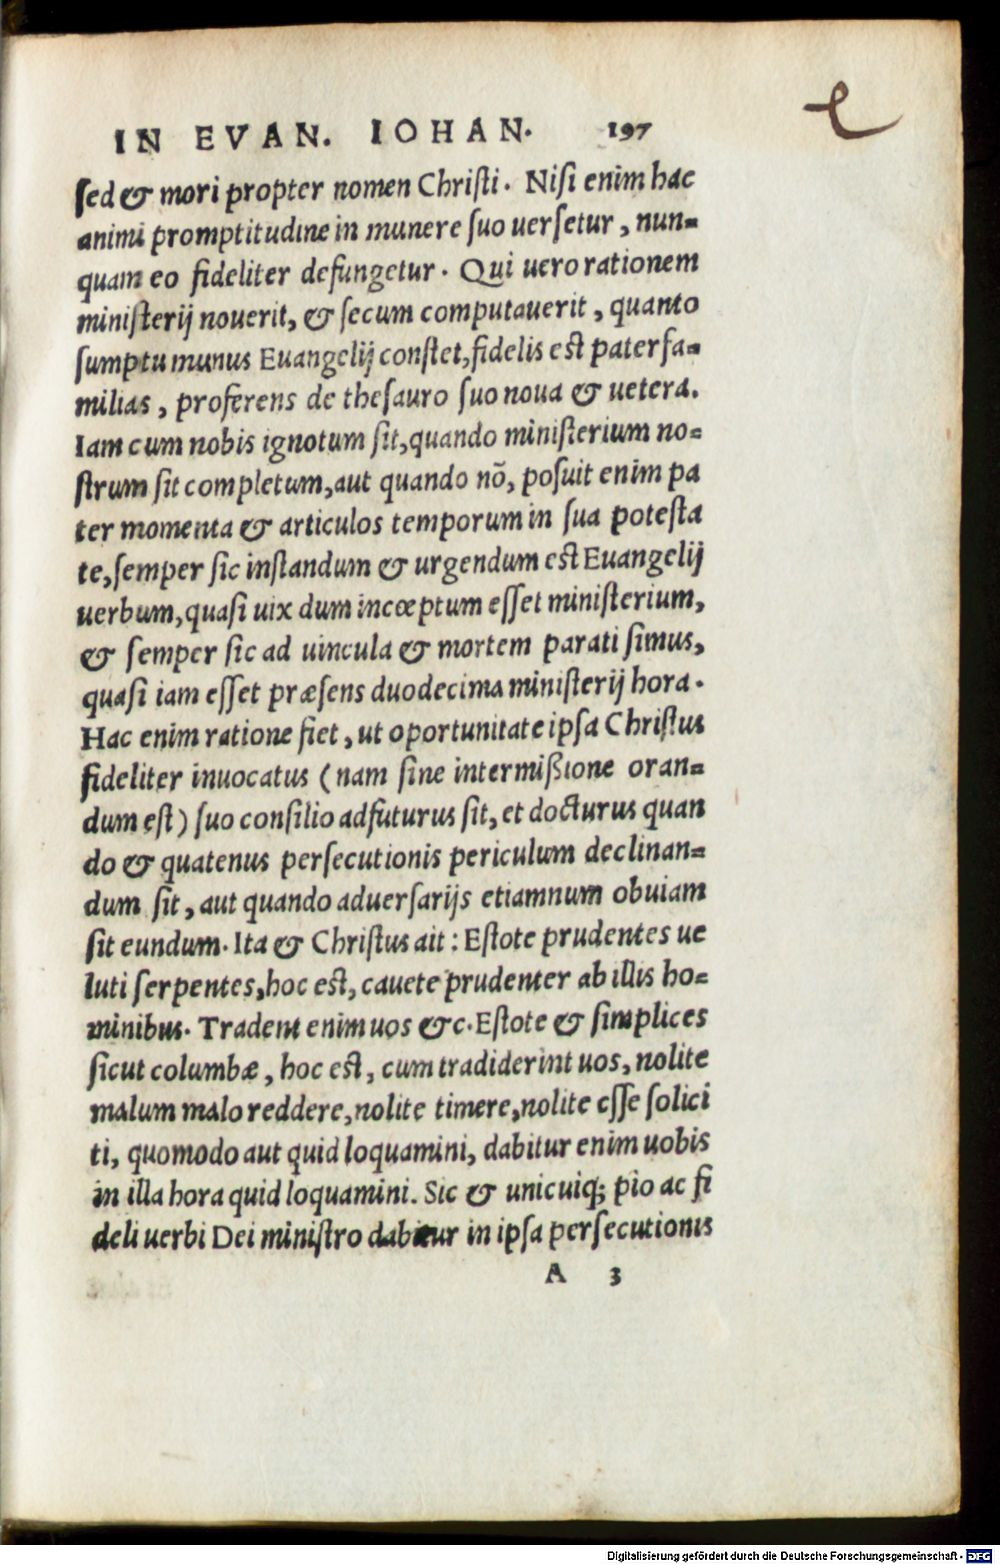 IN EVAN. IOHAN. 197
e
sed & mori propter nomen Christi. Nisi enim hac
animi promptitudine in munere suo uersetur, nun=
quam eo fideliter defungetur. Qui uero rationem
ministerij nouerit, & secum computauerit, quanto
sumptu munus Euangelij constet, fidelis est paterfa=
milias, proferens de thesauro suo noua & uetera.
Iam cum nobis ignotum sit, quando ministerium no=
strum sit completum, aut quando nõ, posuit enim pa
ter momenta & articulos temporum in sua potesta
te, semper sic instandum & urgendum est Euangelij
uerbum, quasi uix dum incœptum esset ministerium,
& semper sic ad uincula & mortem parati simus,
quasi iam esset præsens duodecima ministerij hora.
Hac enim ratione fiet, ut oportunitate ipsa Christus
fideliter inuocatus (nam sine intermißione oran=
dum est) suo consilio adfuturus sit, et docturus quan
do & quatenus persecutionis periculum declinan=
dum sit, aut quando aduersarijs etiamnum obuiam
sit eundum. Ita & Christus ait: Estote prudentes ue
luti serpentes, hoc est, cauete prudenter ab illis ho=
minibus. Tradent enim uos &c. Estote & simplices
sicut columbæ, hoc est, cum tradiderint uos, nolite
malum malo reddere, nolite timere, nolite esse solici
ti, quomodo aut quid loquamini, dabitur enim uobis
in illa hora quid loquamini. Sic & unicuiq; pio ac fi
deli uerbi Dei ministro dabitur in ipsa persecutionis
A 3
Digitalisierung gefördert durch die Deutsche Forschungsgemeinschaft - DFG